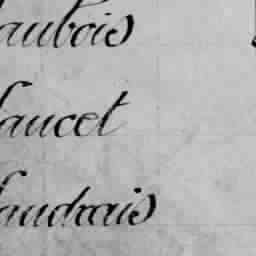 aubois
aucet
audrais